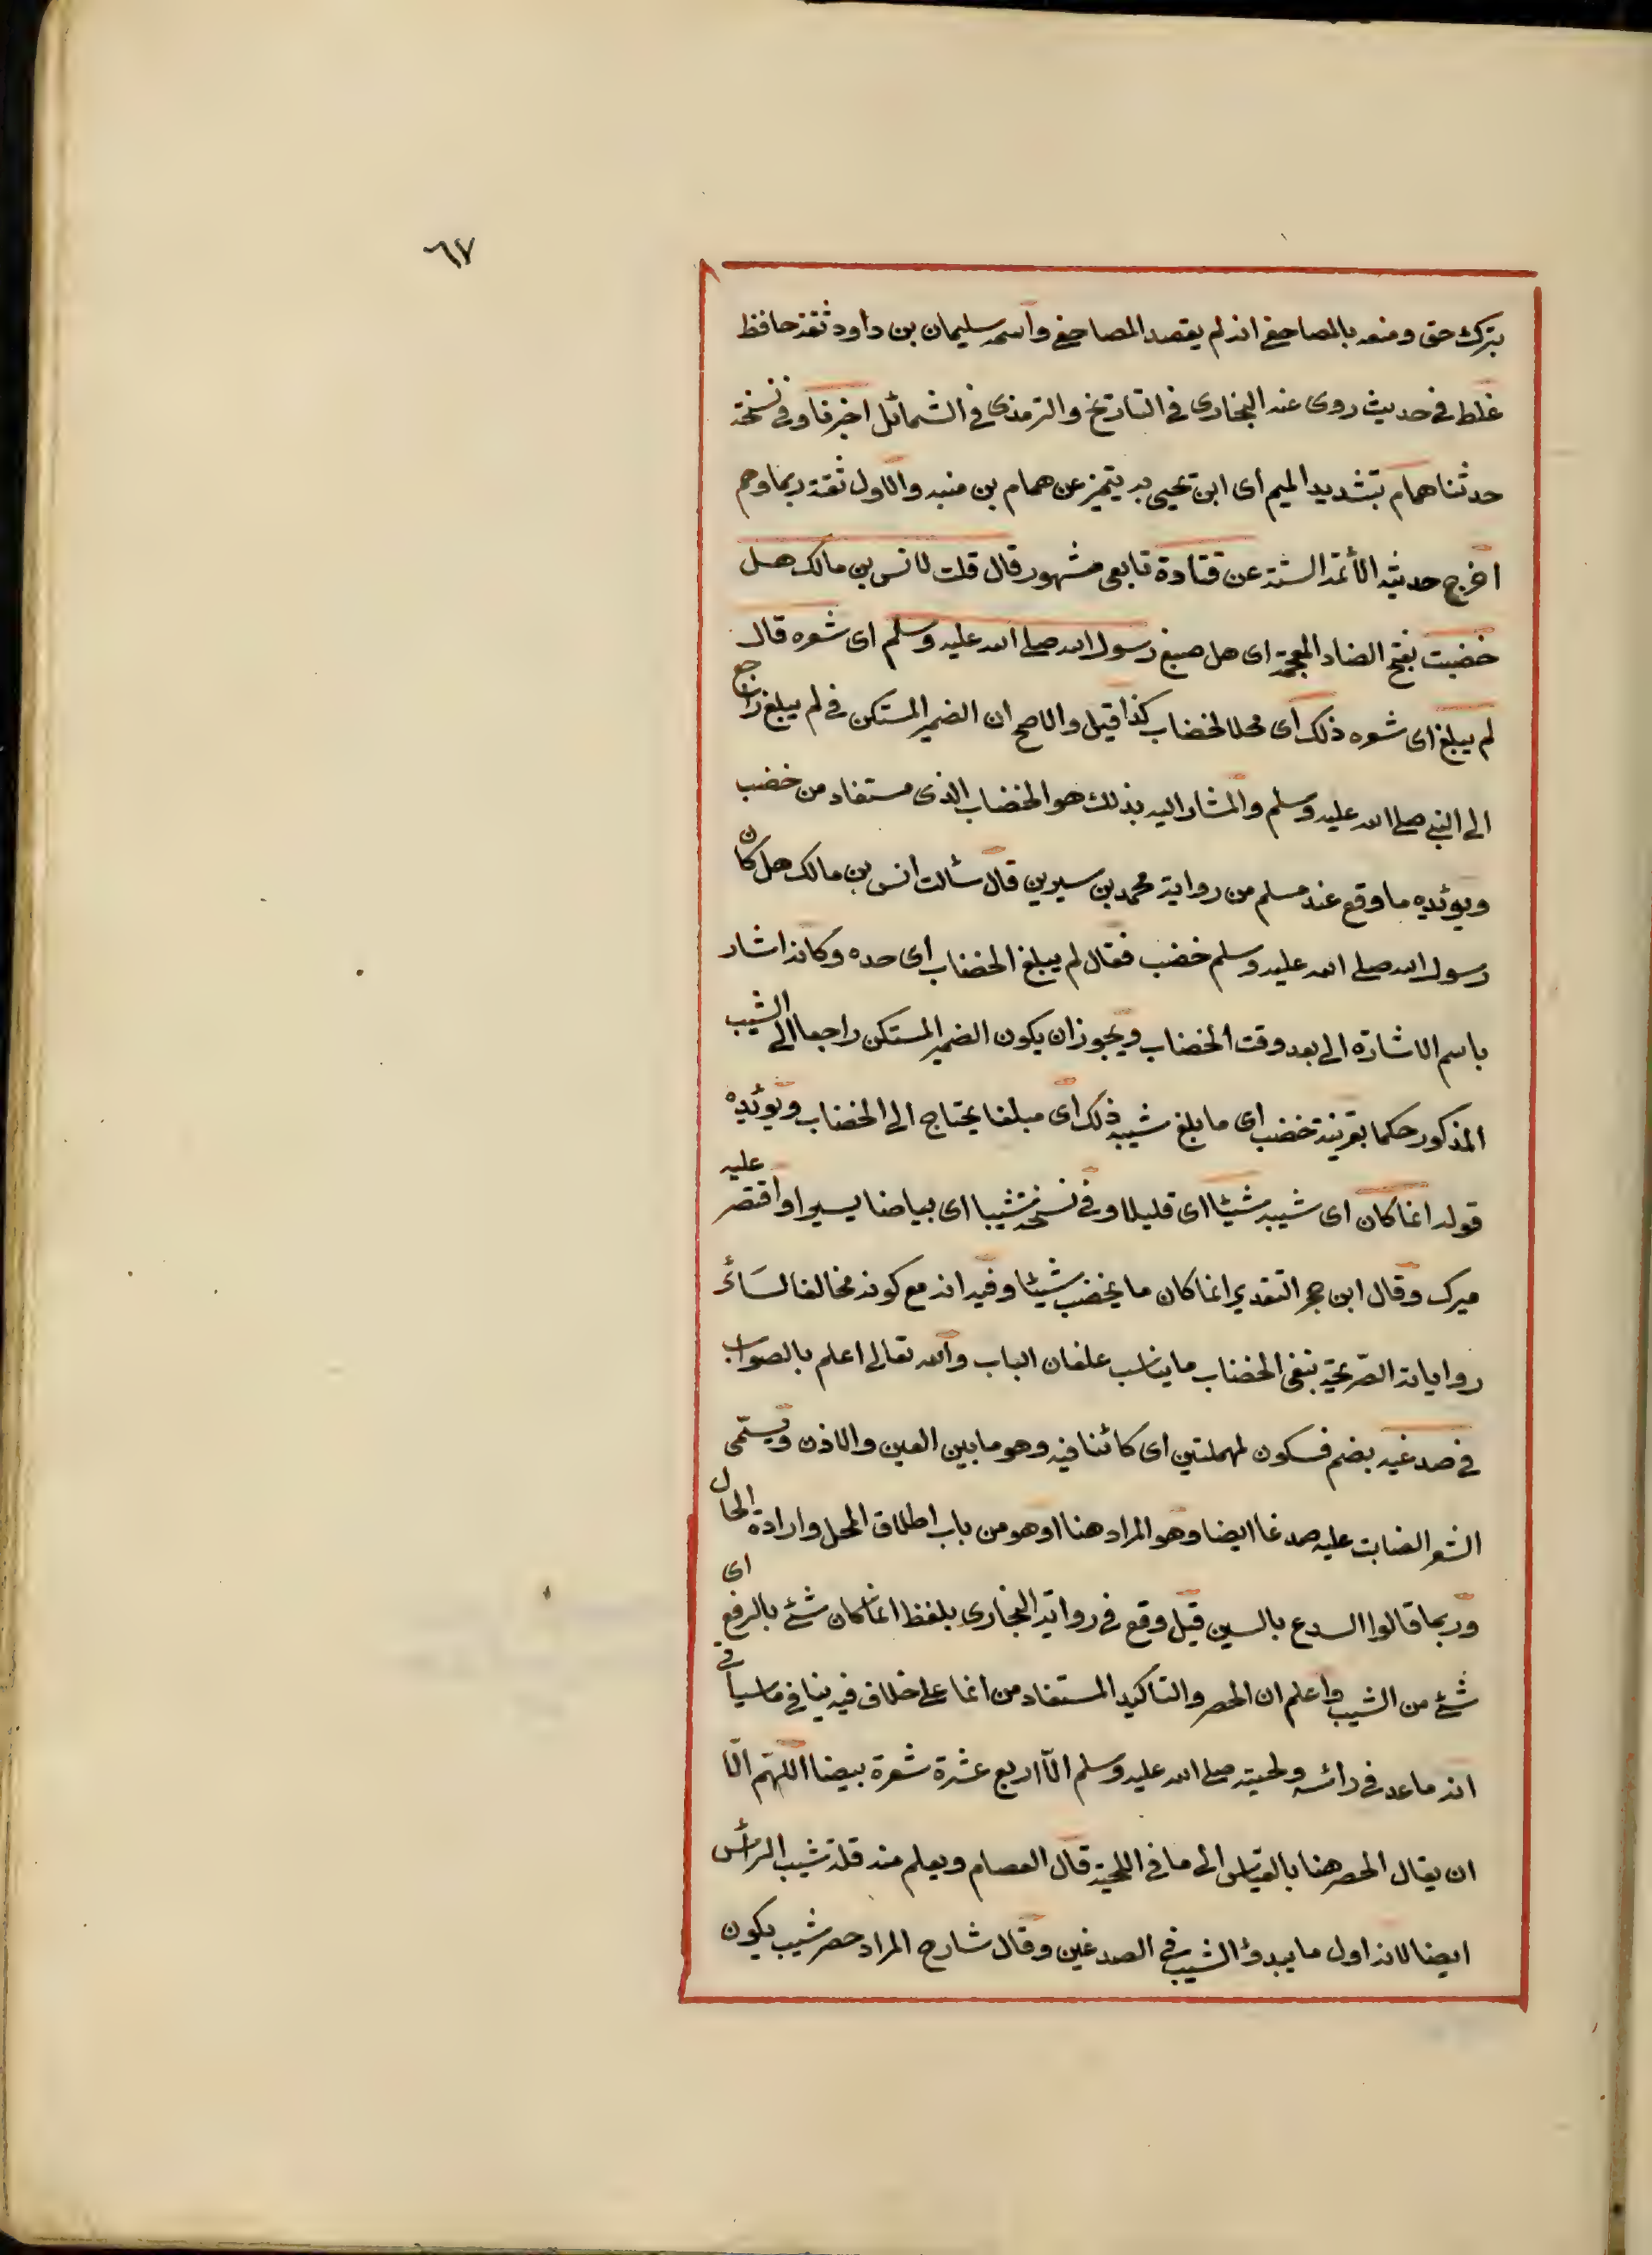 ٦٧
بترك حق ومنعه بالمصاحفي انه لم يقصد المصاحفي واسمه سليمان بن داود ثقة حافظ
غلط في حديث روى عنه البخارى في التاريخ والترمذى في الشمائل اخبرنا وفي نسخة
حدثنا همام بتشديد الميم اى ابن يحيى به يتميز عن همام بن منبه والاول ثقة ربما وهم
اخرج حديثه الأئمة الستة عن قتادة تابعى مشهور قال قلت لانس بن مالك هل
خضب بفتح الضاد المعجمة اى هل صبغ رسول الله صلى الله عليه وسلم اى شعره قال
لم يبلغ اى شعره ذلك اى محل الخضاب كذا قيل والاصح ان الضمير المستكن في لم يبلغ راجع
الى النبي صلى الله عليه وسلم والمشار اليه بذلك هو الخضاب الذى مستفاد من خضب
ويؤئده ما وقع عند مسلم من رواية محمد بن سيرين قال سئالت انس بن مالك هل كان
رسول الله صلى الله عليه وسلم خضب فقال لم يبلغ الخضاب اى حده وكانه اشار
باسم الاشارة الى بعد وقت الخضاب ويجوز ان يكون الضمير المستكن راجعا الى الشيب
المذكور حكما بقرينة خضب اى ما بلغ شيبه ذلك اى مبلغا يحتاج الى الخضاب ويؤئده
قوله انما كان اى شيبه شيئا اى قليلا وفي نسخة شيبا اى بياضا يسيرا واقتصر عليه
ميرك وقال ابن حجر التقدير انما كان ما يخضب شيئا وفيه انه مع كونه مخالفا لسائر
رواياته الصريحة بنفى الخضاب ما يناسب علفان الباب والله تعالى اعلم بالصواب
في صدغيه بضم فسكون لمهملتين اى كائنا فيه وهو ما بين العين والاذن ويسمّى
الشعر الضابت عليه صدغا ايضا وهو المراد هنا او هو من باب اطلاق المحل وارادة الحال
وربما قالوا السدع بالسين قيل وقع في رواية البخارى بلفظ انما كان شئ بالرفع اى
شئ من الشيب واعلم ان الحصر والتاكيد المستفاد من انما على خلاف فيه ينافي ما سيأ في
انه ما عد في رائسه ولحيته صلى الله عليه وسلم الّا اربع عشرة شعرة بيضا اللّهّم الّا
ان يقال الحصر هنا بالقياس الى ما في اللحية قال العصام ويعلم منه قلة شيب الرأس
ايضا لانه اول ما يبدؤ الشيب في الصدغين وقال شارح المراد حصر شيب يكون